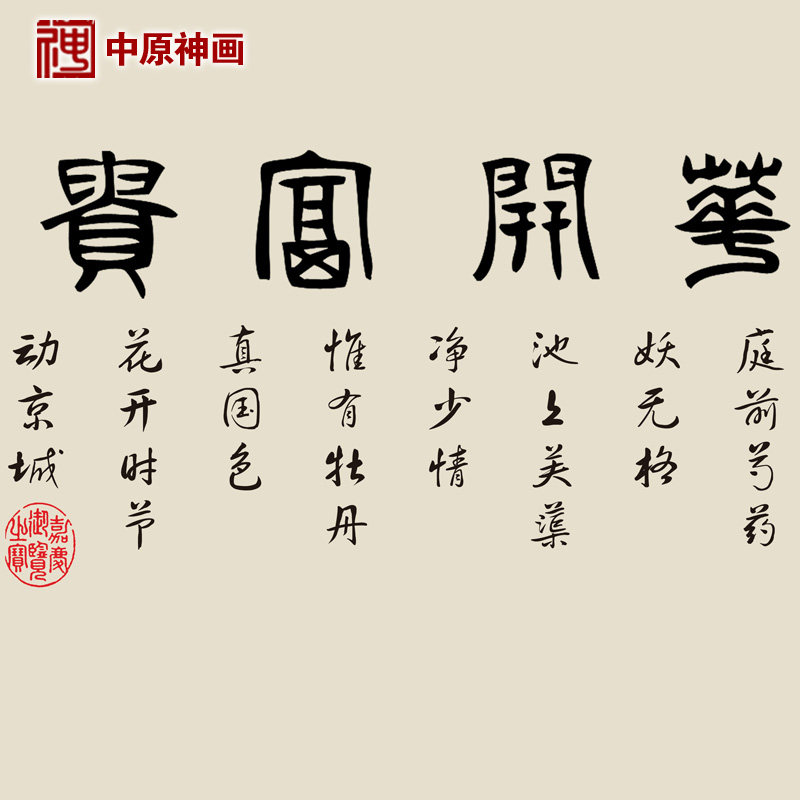 中原神画
華開富貴
庭前芍药
妖无格
池上美蕖
净少情
惟有牡丹
真国色
花开时节
动京城
嘉慶御覽之寶